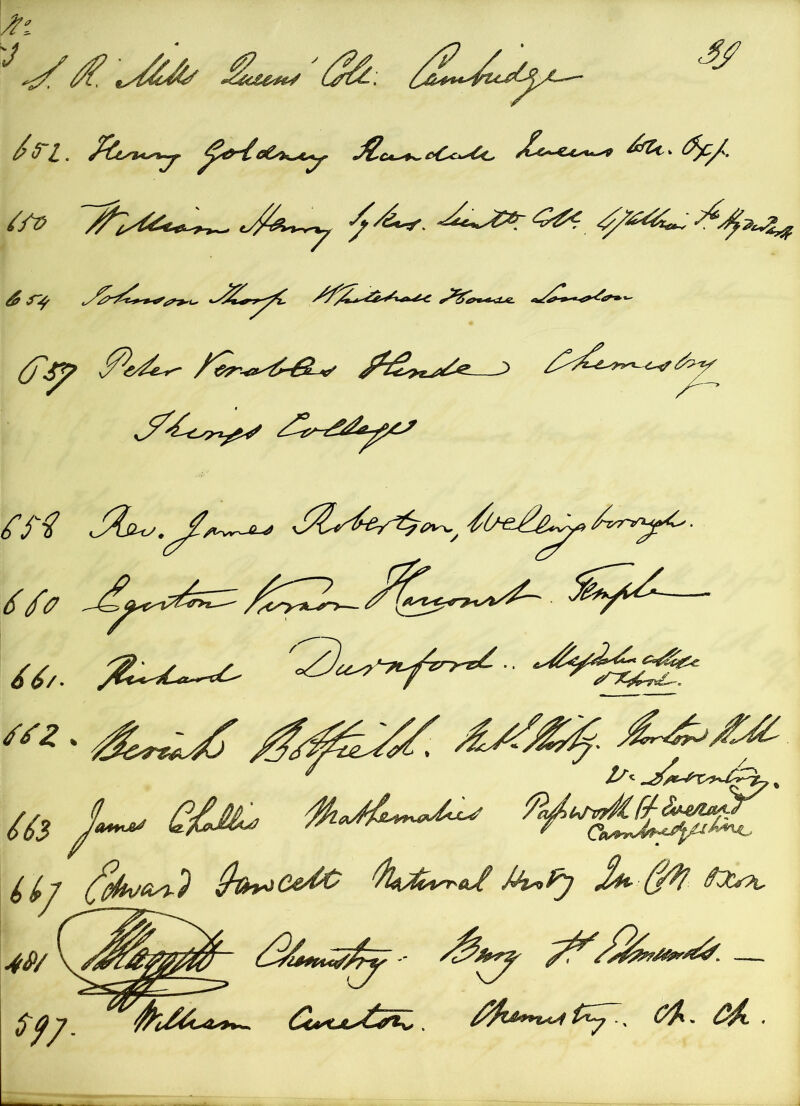 No
39
S. R. Mills Queens' Coll: Cambridge
652. Henry Goldney Randall Queens Coll. Oxf.
650 William Henry Sykes. Lieutt. Coll. 47 Albion St. Hyde Park
654 Johnson Thorp Whitehall House London
657 Peter Venables Hinde Chemistry
Kings College
658 Rev. James Robertson, Wellingborough.
660 Egerton Vernon Harcourt Temple
661. Richard Durnford.. Magdalen College
Oxford.
662. Beriah Botfield. Natl. Histy. Norton Hall
Daventry.
663 James Challis Mathematics Papworth St Everard
Cambridgeshire
667 Edward Fawcett Natural Histy Qu. Coll Oxon
481 Chemistry. Bury St. Edmunds. —
597. William Cureton. Chemistry.. Ch. Ch.